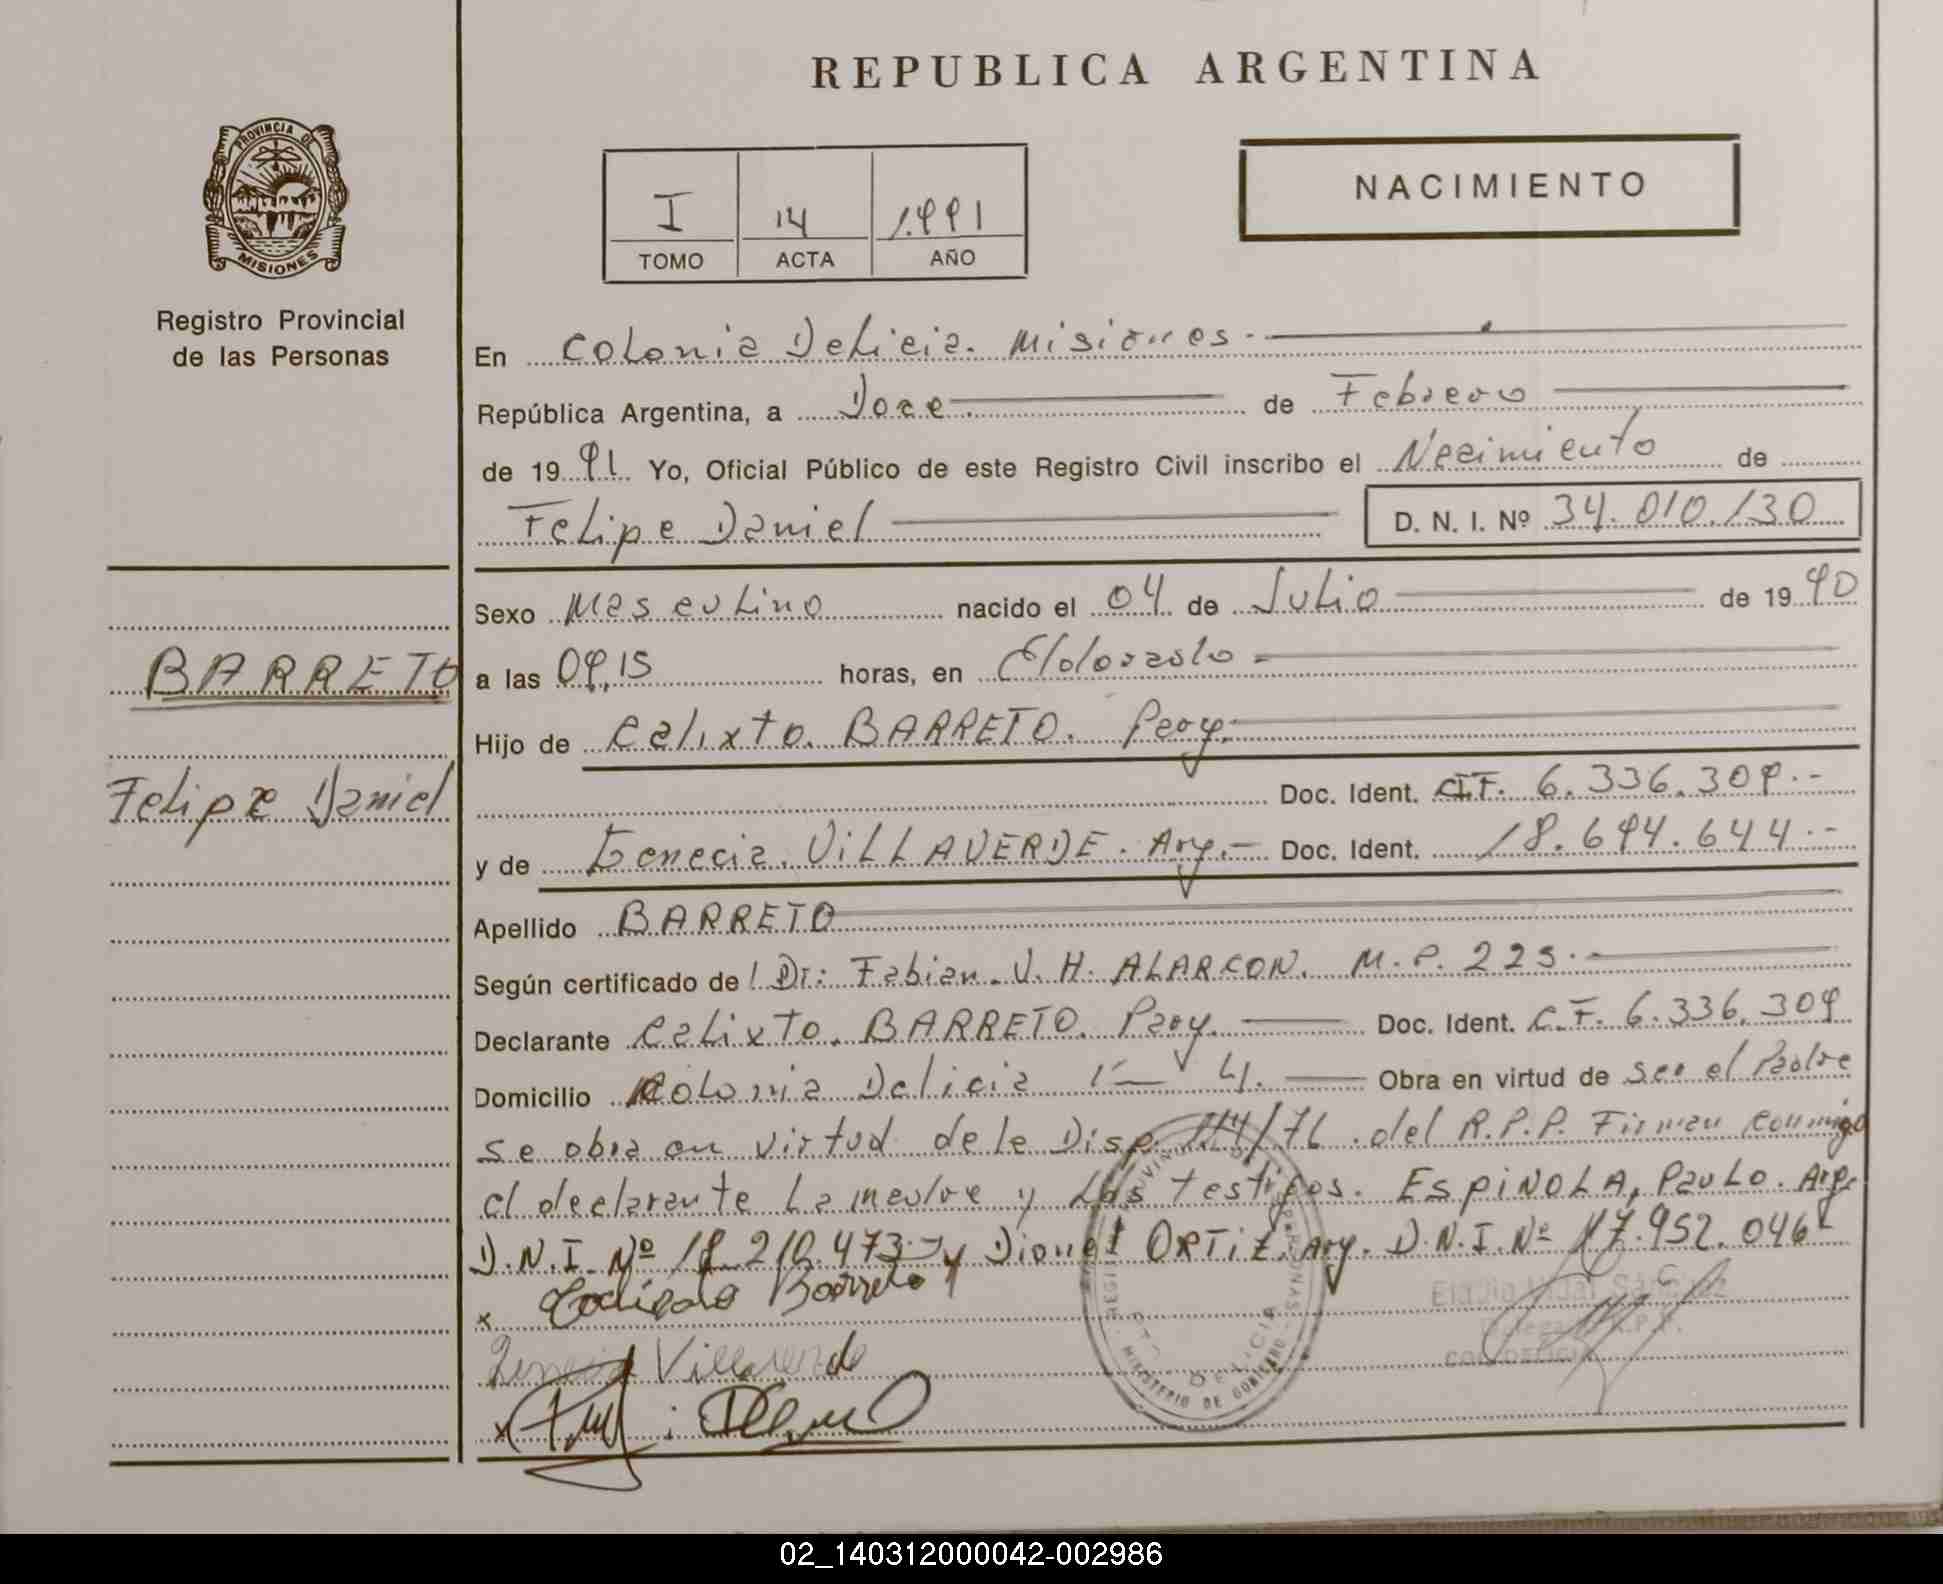 REPUBLICA ARGENTINA
PROVINCIA DE
MISIONES
Registro Provincial
de las Personas
I 14 1.991
TOMO ACTA AÑO
NACIMIENTO
En Colonia Delicia. Misiones.-
República Argentina, a Doce de Febrero
de 1991 Yo, Oficial Público de este Registro Civil inscribo el Nacimiento de
Felipe Daniel D. N. I. Nº 34.010.130
BARRETO
Felipe Daniel
Sexo Masculino nacido el 04 de Julio de 1990
a las 09,15 horas, en Eldorado -
Hijo de Calixto. BARRETO. Pary.
Doc. Ident. C.I.F. 6.336.309.-
y de VILLAVERDE. Arg.- Doc. Ident. 18.694.644.-
Apellido BARRETO
Según certificado de Dr: Fabian. V. H. ALARCON. M.P. 225.-
Declarante Calixto. BARRETO. Pary. Doc. Ident. C.F. 6.336.309
Domicilio Colonia Delicia 4. Obra en virtud de ser el Padre
se obra en virtud de la Disp. 114/76 .del R.P.P. Firman conmigo
el declarante La madre y Los testigos. ESPINOLA, Paulo. Arg.
D.N.I. Nº 18.210.473.- y ORTIZ. Arg. D.N.I. Nº 17.952.046
x Barreto
Villaverde
x
MINISTERIO DE GOBIERNO
DELICIA
02_140312000042-002986